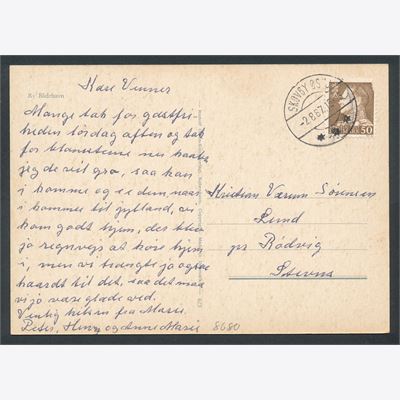 Ry Bådehavn
Kære Venner
Mange tak for gæstfri
heden lørdag aften og tak
for blomsterne nu haaber
jeg de vil gro, saa kan
i komme og se dem naar
i kommer til jylland, vi
kom godt hjem, det blev
jo regnvejr at køre hjem
i, men vi trængte jo ogsaa
haardt til det, saa det maa
vi jo være glade ved.
Venlig hilsen fra Marie
Peter, Henry og Anne Marie
8680
SKOVBY
-2.8.67
50
Kristian Værum Sørensen
Lund
pr Rødvig
Stevns